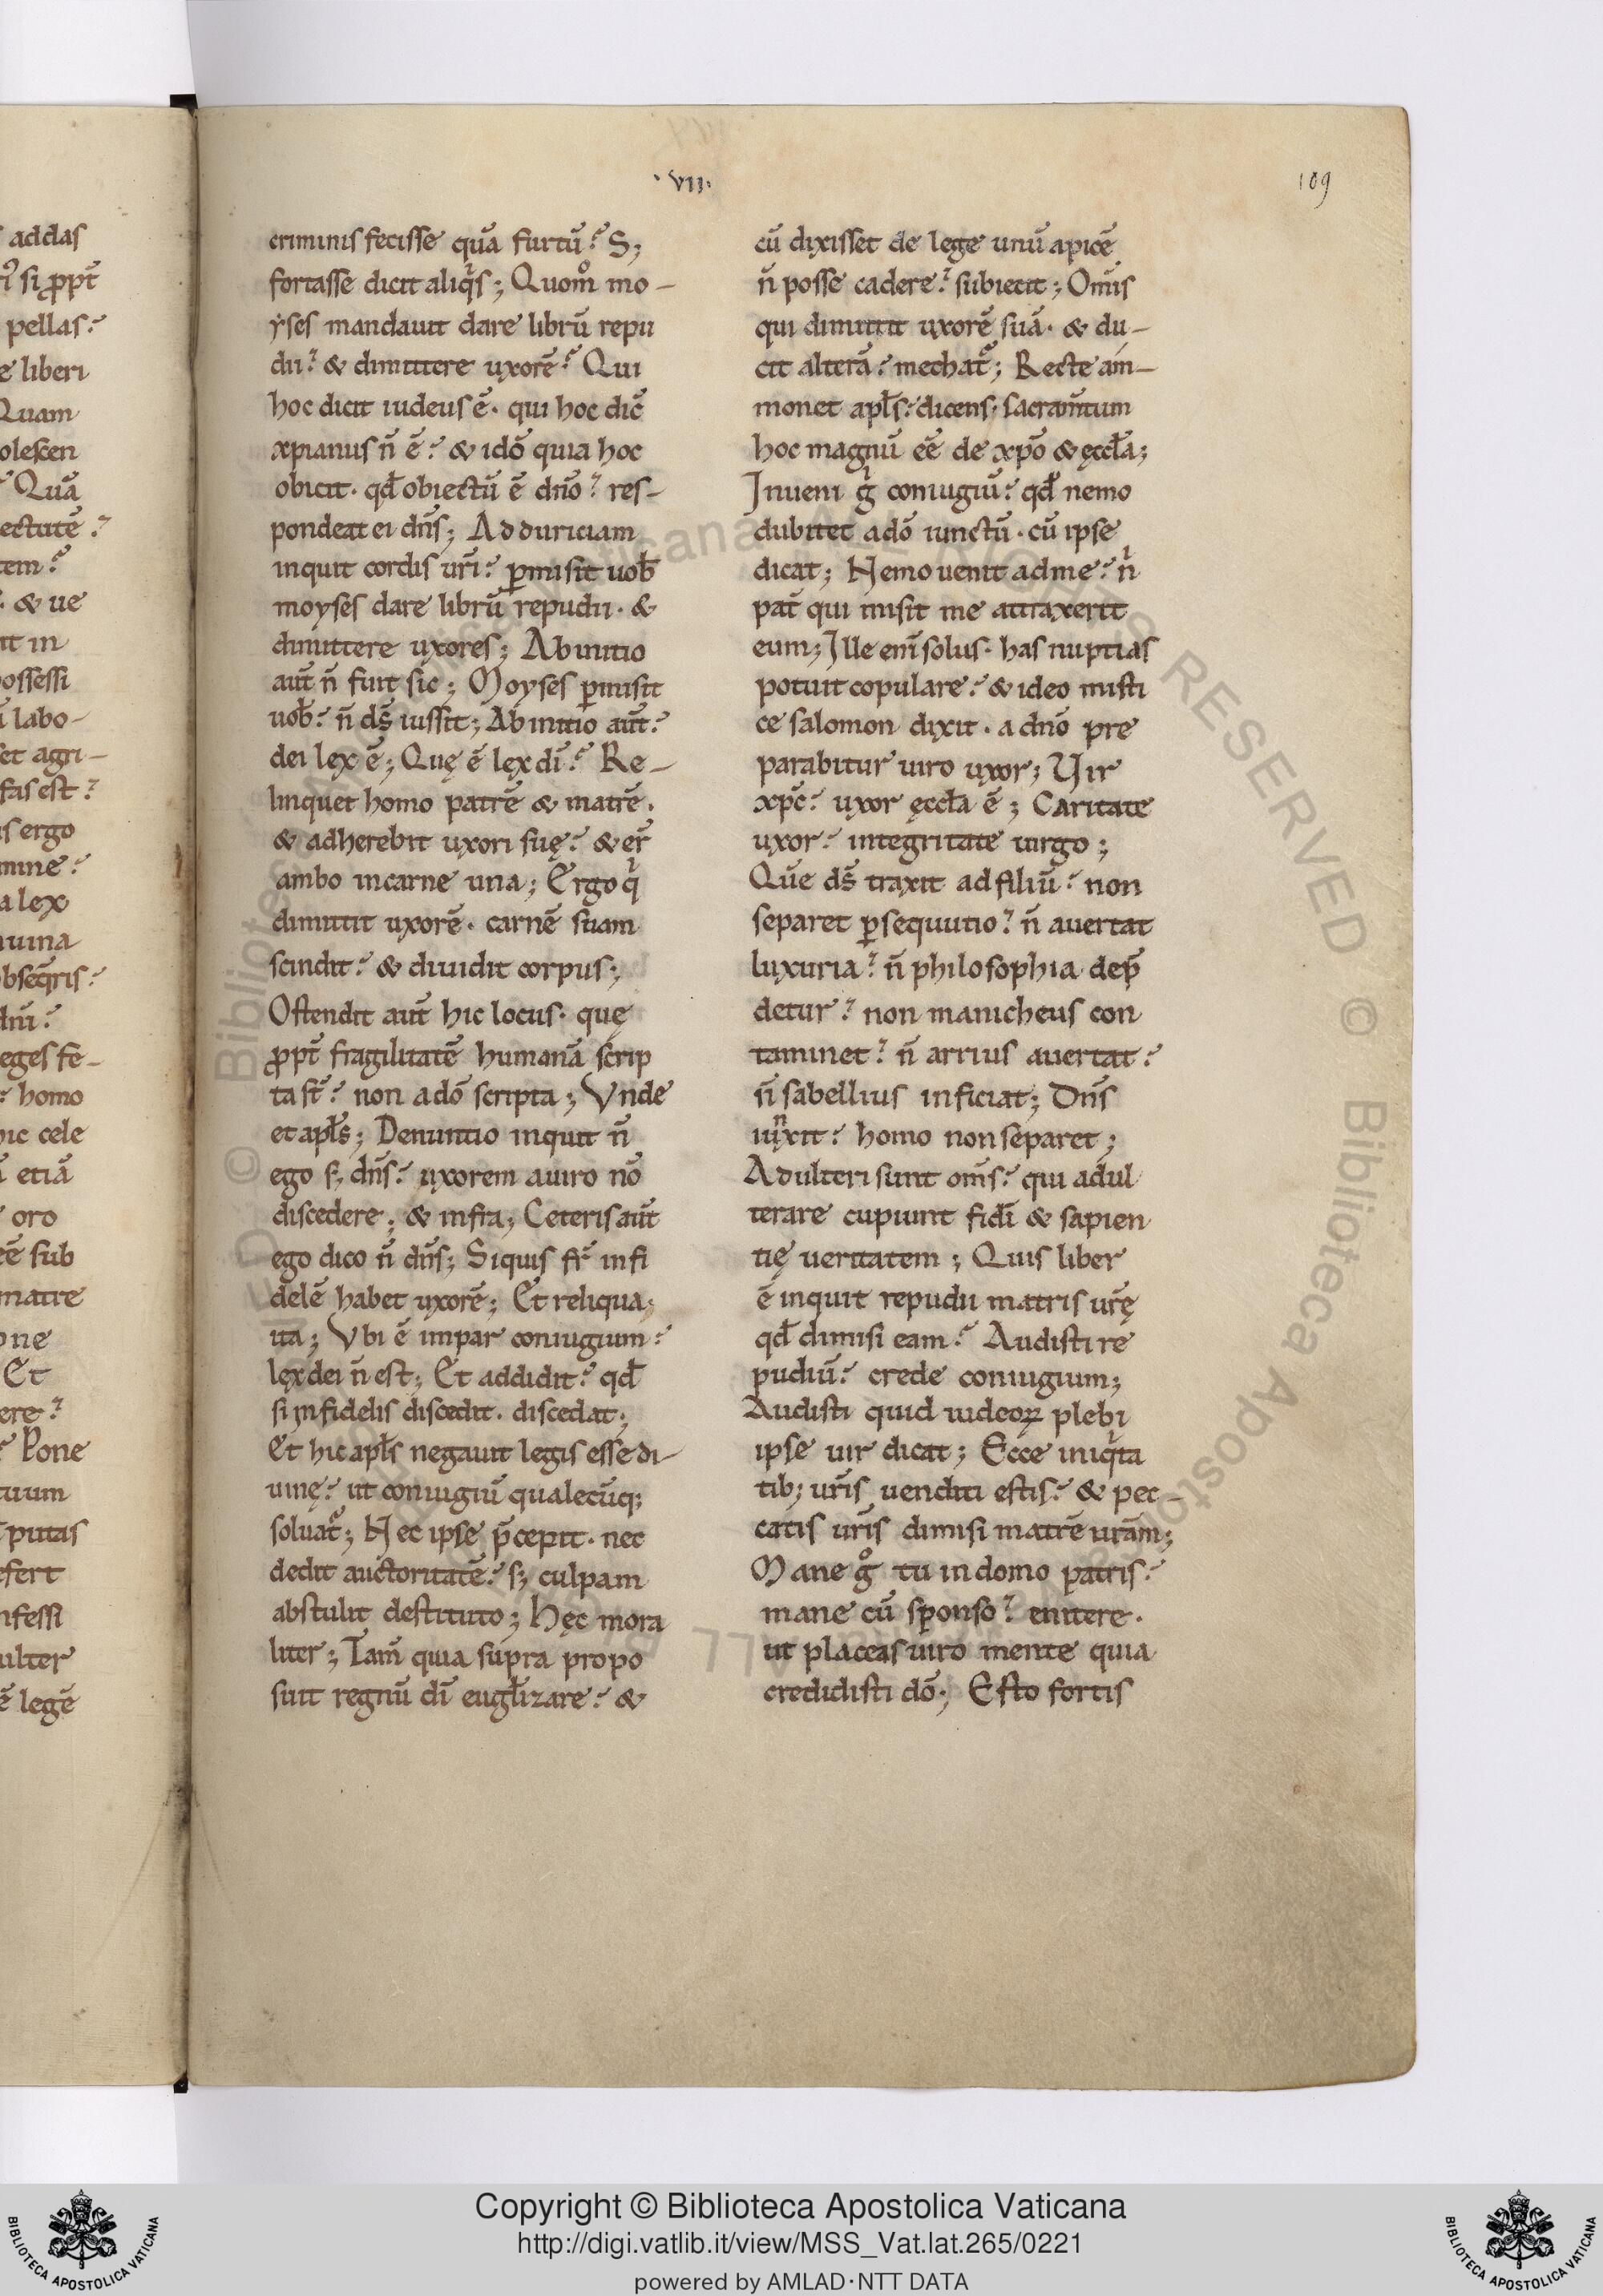 addas
si ꝓpt̄
pellas
e liberi
Quam
olescen
Quā
ectutē
tem
& ue
it in
ossessi
labo-
et agri-
fas est
s ergo
mine
a lex
uina
obseq̄ris
dn̄i
leges fe-
homo
hic cele
etiā
oro
eē sub
matre
one
Et
ere
Pone
tuum
putas
efert
nfessi
ulter
ē legē
·VII·
109
criminis fecisse quā furtū? S;
fortasse dicit aliqͥs; Quom̊ mo-
ẏses mandauit dare librū repu
dii? & dimittere uxorē? Qui
hoc dicit iudeus ē· qui hoc dic̄
xp̄ianus n̄ ē? & idō quia hoc
obicit· qd̄ obiectū ē dn̄o? res-
pondeat ei dn̄s; Ad duriciam
inquit cordis ur̄i? ꝑmisit uob̄
moyses dare librū repudii· &
dimittere uxores; Ab initio
aut̄ n̄ fuit sic; Moyses ꝑmisit
uob̄? n̄ ds̄ iussit; Ab initio aut̄?
dei lex ē; Quę ē lex dī? Re-
linquet homo patrē & matrē·
& adherebit uxori suę? & er̄
ambo in carne una; Ergo qͥ
dimittit uxorē· carnē suam
scindit? & diuidit corpus;
Ostendit aut̄ hic locus· quę
ꝓpt̄ fragilitatē humanā scrip
ta st̄? non a dō scripta; Vnde
et apl̄s; Denuntio inquit n̄
ego s; dn̄s? uxorem a uiro nō
discedere; & infra; Ceteris aut̄
ego dico n̄ dn̄s; Siquis fr̄ infi
delē habet uxorē; Et reliqua;
ita; Vbi ē impar coniugium?
lex dei n̄ est; Et addidit? qd̄
si infidelis discedit· discedat;
Et hic apl̄s negauit legis esse di-
uinę? ut coniugiū qualecūq;
soluat᷑; Nec ipse p̄cepit· nec
dedit auctoritatē? s; culpam
abstulit destituto; Hęc mora
liter; Tam̄ quia supra propo
suit regnū dī eugl̄izare? &
cū dixisset de lege unū apicē
n̄ posse cadere? subiecit; Om̄is
qui dimittit uxorē suā· & du-
cit alterā? mechat᷑; Recte am-
monet apl̄s? dicens· sacram̄tum
hoc magnū eē de xp̄o & ęccl̄a;
Inueni gͥ coniugiū? qd̄ nemo
dubitet a dō iunctū· cū ipse
dicat; Nemo uenit ad me? nͥ
pat̄ qui misit me attraxerit
eum; Ille eni᷑ solus· has nuptias
potuit copulare? & ideo misti
ce salomon dixit· a dn̄o pre
parabitur uiro uxor; Vir
xp̄c? uxor ęccl̄a ē; Caritate
uxor? integritate uirgo;
Quē ds̄ traxit ad filiū? non
separet ꝑsequutio? n̄ auertat
luxuria? n̄ philosophia dep̄
detur? non manicheus con
taminet? n̄ arrius auertat?
n̄ sabellius inficiat; Dn̄s
iunxit? homo non separet;
Adulteri sunt om̄s? qui adul
terare cupiunt fidī & sapien
tię ueritatem; Quis liber
ē inquit repudii matris ur̄ę
qd̄ dimisi eam? Audisti re
pudiū? crede coniugium;
Audisti quid iudeoꝝ plebi
ipse uir dicat; Ecce iniqͥta
tib; ur̄is uenditi estis? & pec-
catis ur̄is dimisi matrē urām;
Mane gͦ tu in domo patris?
mane cū sponso? enitere·
ut placeas uiro mente quia
credidisti dō; Esto fortis
Copyright © Biblioteca Apostolica Vaticana
http://digi.vatlib.it/view/MSS_Vat.lat.265/0221
powered by AMLAD·NTT DATA
BIBLIOTECA APOSTOLICA VATICANA
BIBLIOTECA APOSTOLICA VATICANA